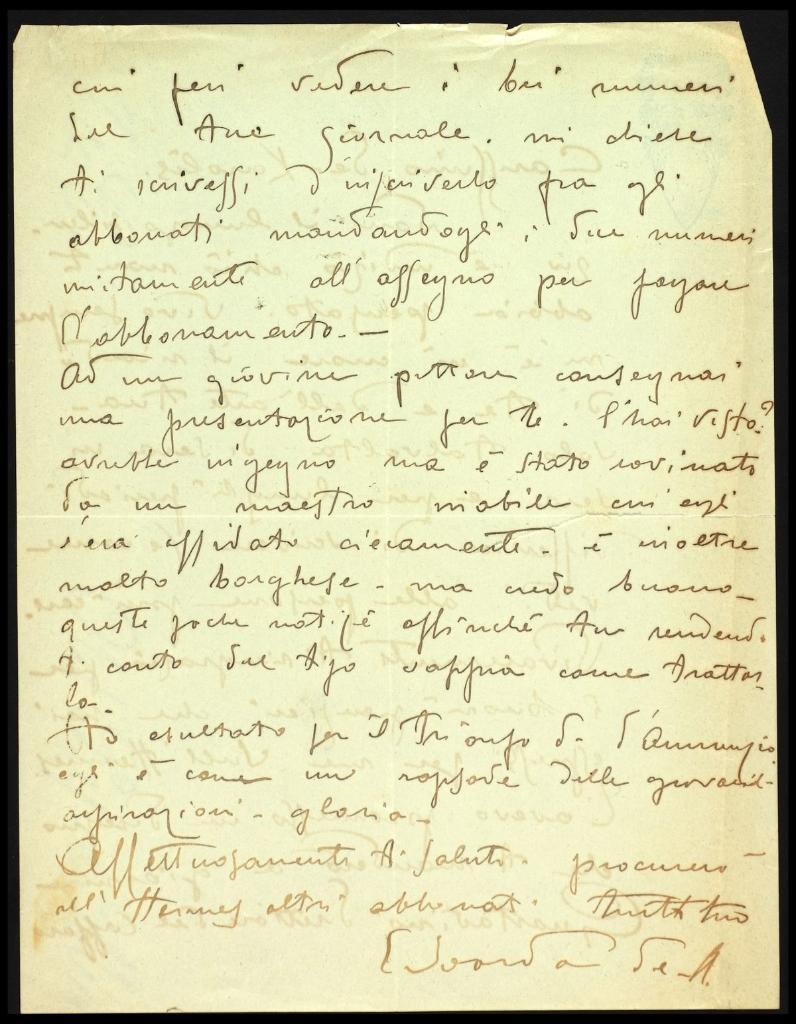 cui feci vedere i bei numeri
del tuo giornale. mi diete
ti scrivessi d'inscriverlo fra gli
abbonati mandandogli i due numeri
unitamente all'assegno per pagare
l'abbonamento. —
Ad un giovine pittore consegnai
una presentazione per te. l'hai visto?
avrebbe ingegno ma è stato rovinato
da un maestro cui egli
s'era affidato ciecamente. è inoltre
molto borghese - ma credo buono -
queste poche notizie affinché tu rendendo
ti conto del tipo sappia come trattar
lo -
Ho esultato per il Trionfo di d'Annunzio
egli è come un rapsode delle giovanili
aspirazioni - gloria -
Affettuosamente ti saluto. procurerò
all'Hermes altri abbonati. tutto tuo
Edoardo de A.